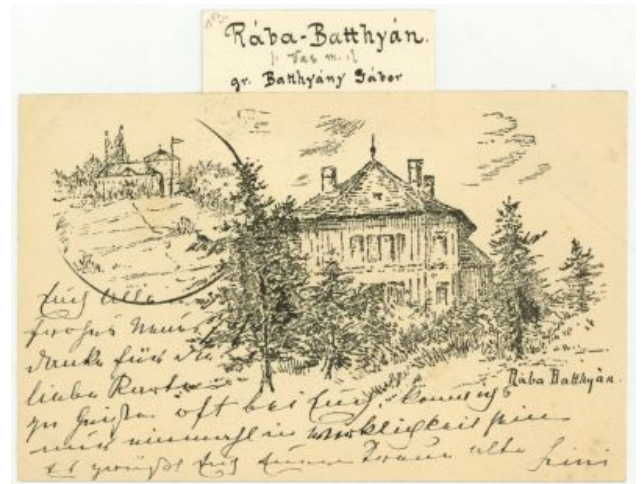 Rába-Batthyán.
(Vas m.)
gr. Batthyány Gábor
Rába Batthyán.
Euch Alle
frohes Neues
danke für die
liebe Karte
im Geiste oft bei Euch,
nur einmahl in Wirkligkeit
Es grüßt Euch Eure alte